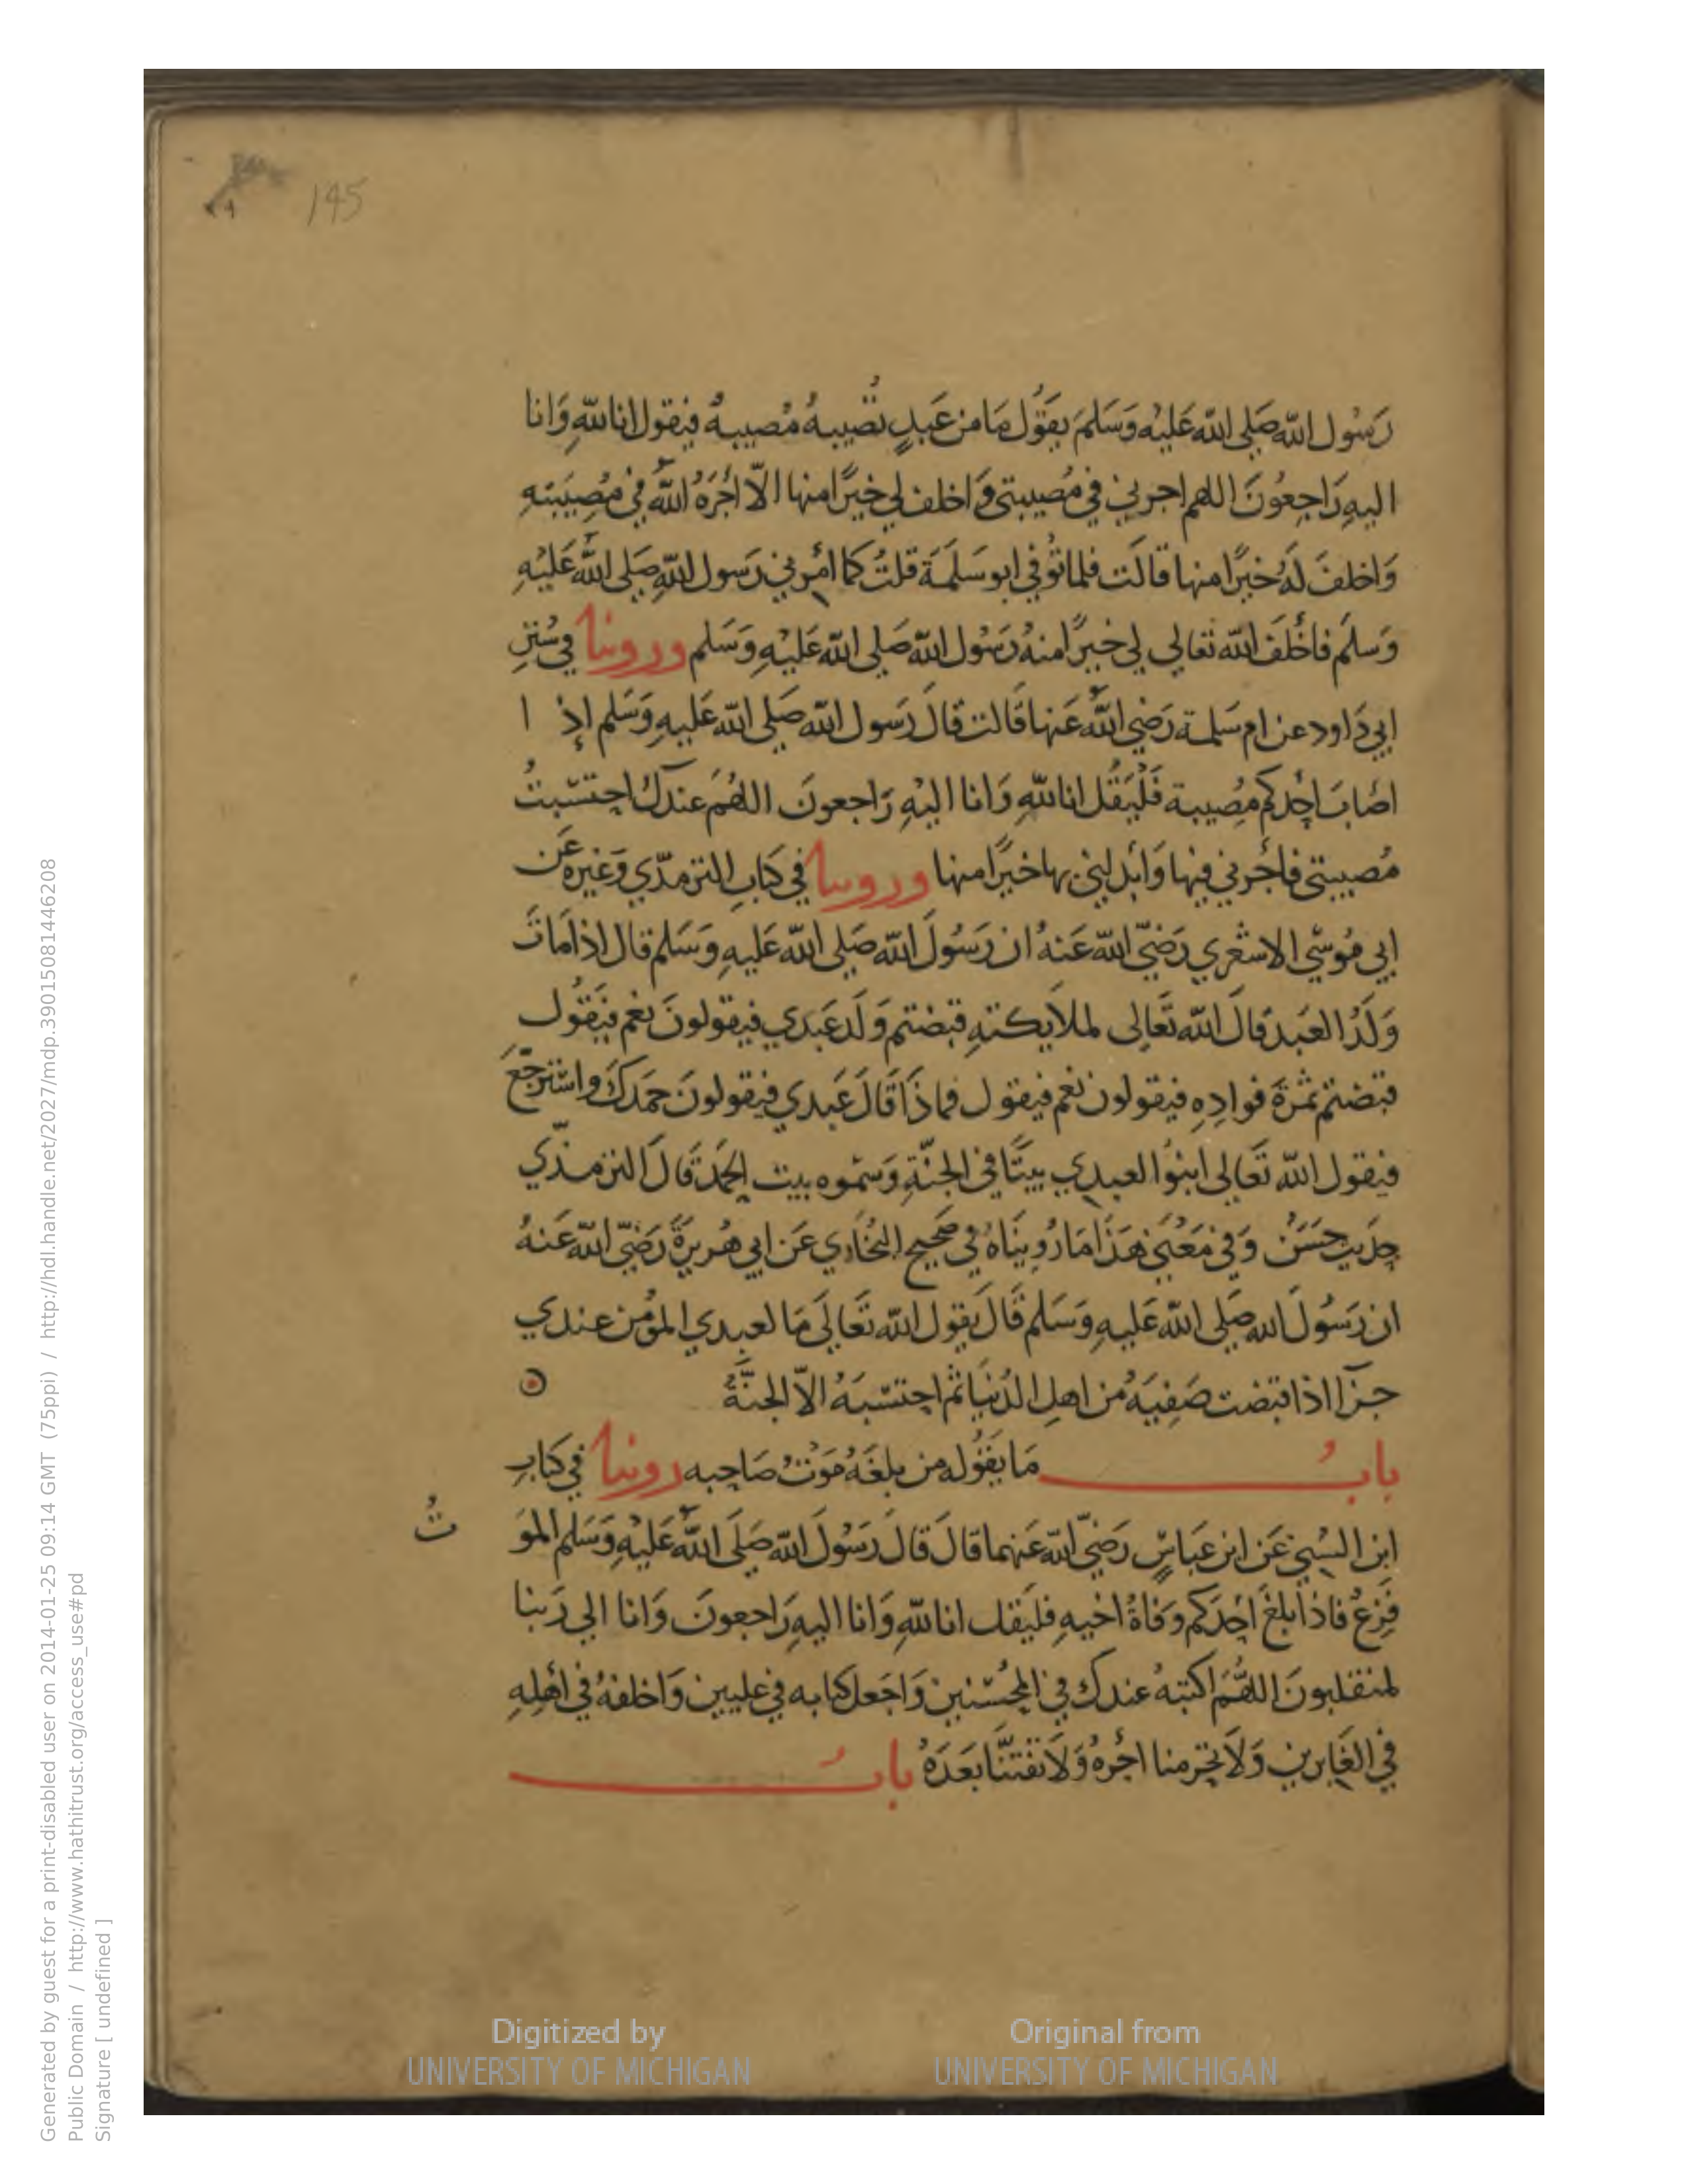 145
رَسُول الله صَلى الله عَليْه وَسَلمَ يَقوُل مَا من عَبدٍ تُصيبهُ مُصيبهُ فيقول انا للهِ وَانا
اليهِ رَاجِعُونَ اللهم اجرني في مُصيبتي وَاخلف لي خيرًا منها الّا اجَرَهُ اللهُ في مُصِيبَتِهِ
وَاخلفَ لَهُ خيرًا منها قالَت فلما توُفي ابو سَلَمَة قلتُ كما امَرني رَسول اللهِ صَلى اللهُ عَليْهِ
وَسَلمَ فاَخْلَفَ الله تعَالي لي خيرًا منهُ رَسُول الله صَلى الله عَليْهِ وَسَلم وروينا في سُنَنِ
ابي دَاود عن ام سَلمة رَضي اللهُ عَنها قَالت قالَ رَسول الله صَلى الله عَليهِ وَسَلم اِذ ا
اصَابَ احَدكم مصِيبة فَلْيَقُل انا للهِ وَانا اليْهِ رَاجعونَ اللهُم عندكَ احتسَبتُ
مُصيبتي فاجُرني فيها وَابْدلني بها خيرًا منها وروينا في كتابِ الترمذّي وَغيْره عَن
ابي موُسَي الاشعَري رَضيَ الله عَنهُ ان رَسُولَ الله صَلى الله عَليهِ وَسَلم قال اذا مَاتَ
وَلَدُ العَبَد قالَ الله تَعَالى لملايكتهِ قبضتم وَلَد عَبدي فيقولونَ نعَم فيَقوُل
قبَضتم ثمرَة فوادِهِ فيقولون نعم فيقول فماذَا قَالَ عَبدي فيقولونَ حمَدكَ واسْترجَعَ
فيقول الله تَعَالي ابنوُا لعبدي بيتًا في الجنَّةِ وَسَمّوه بيت الحَمَد قَالَ الترمذّي
حدَيث حَسَنُ وَفي مَعْنَي هَذَا مَا رُوينَاهُ في صَحيحِ البُخَاري عَن ابي هُريرَةَ رَضيَ الله عَنهُ
ان رَسُولَ الله صَلي الله عَليهِ وَسَلم قَالَ يقول الله تَعَالَي مَا لعبدي المؤمن عندي
جزآ اذا قبَضت صَفِيَهُ من اهلِ الدُنيَا ثم احتسَبَهُ الّا الجنَّةُ
بابُ مَا يَقوُله من بلغَهُ مَوْتُ صَاحِبه روينا في كتابِ
ابن السُني عَن ابن عَباسٍ رَضيَ الله عَنهما قالَ قالَ رَسُولَ الله صَلَى اللهُ عَليْهِ وَسَلم الموَ
تُ
فَزِعُ فاذا بلغَ احَدَكم وَفاةُ اخيهِ فليَقل انا للهِ وَانا اليهِ رَاجعونَ وَانا الي رَبنا
لمنقلبونَ اللهُمَ اكتبهُ عندكَ في المحُسنين وَاجَعل كتابه في عليين وَاخلفهُ في اهْلِهِ
في الغَابرين وَلَا تحرمنا اجْرهُ وَلَا تَفتنَّا بَعَدَهُ بابُ
Digitized by
UNIVERSITY OF MICHIGAN
Original from
UNIVERSITY OF MICHIGAN
Generated by guest for a print-disabled user on 2014-01-25 09:14 GMT (75ppi) / http://hdl.handle.net/2027/mdp.39015081446208
Public Domain / http://www.hathitrust.org/access_use#pd
Signature [ undefined ]